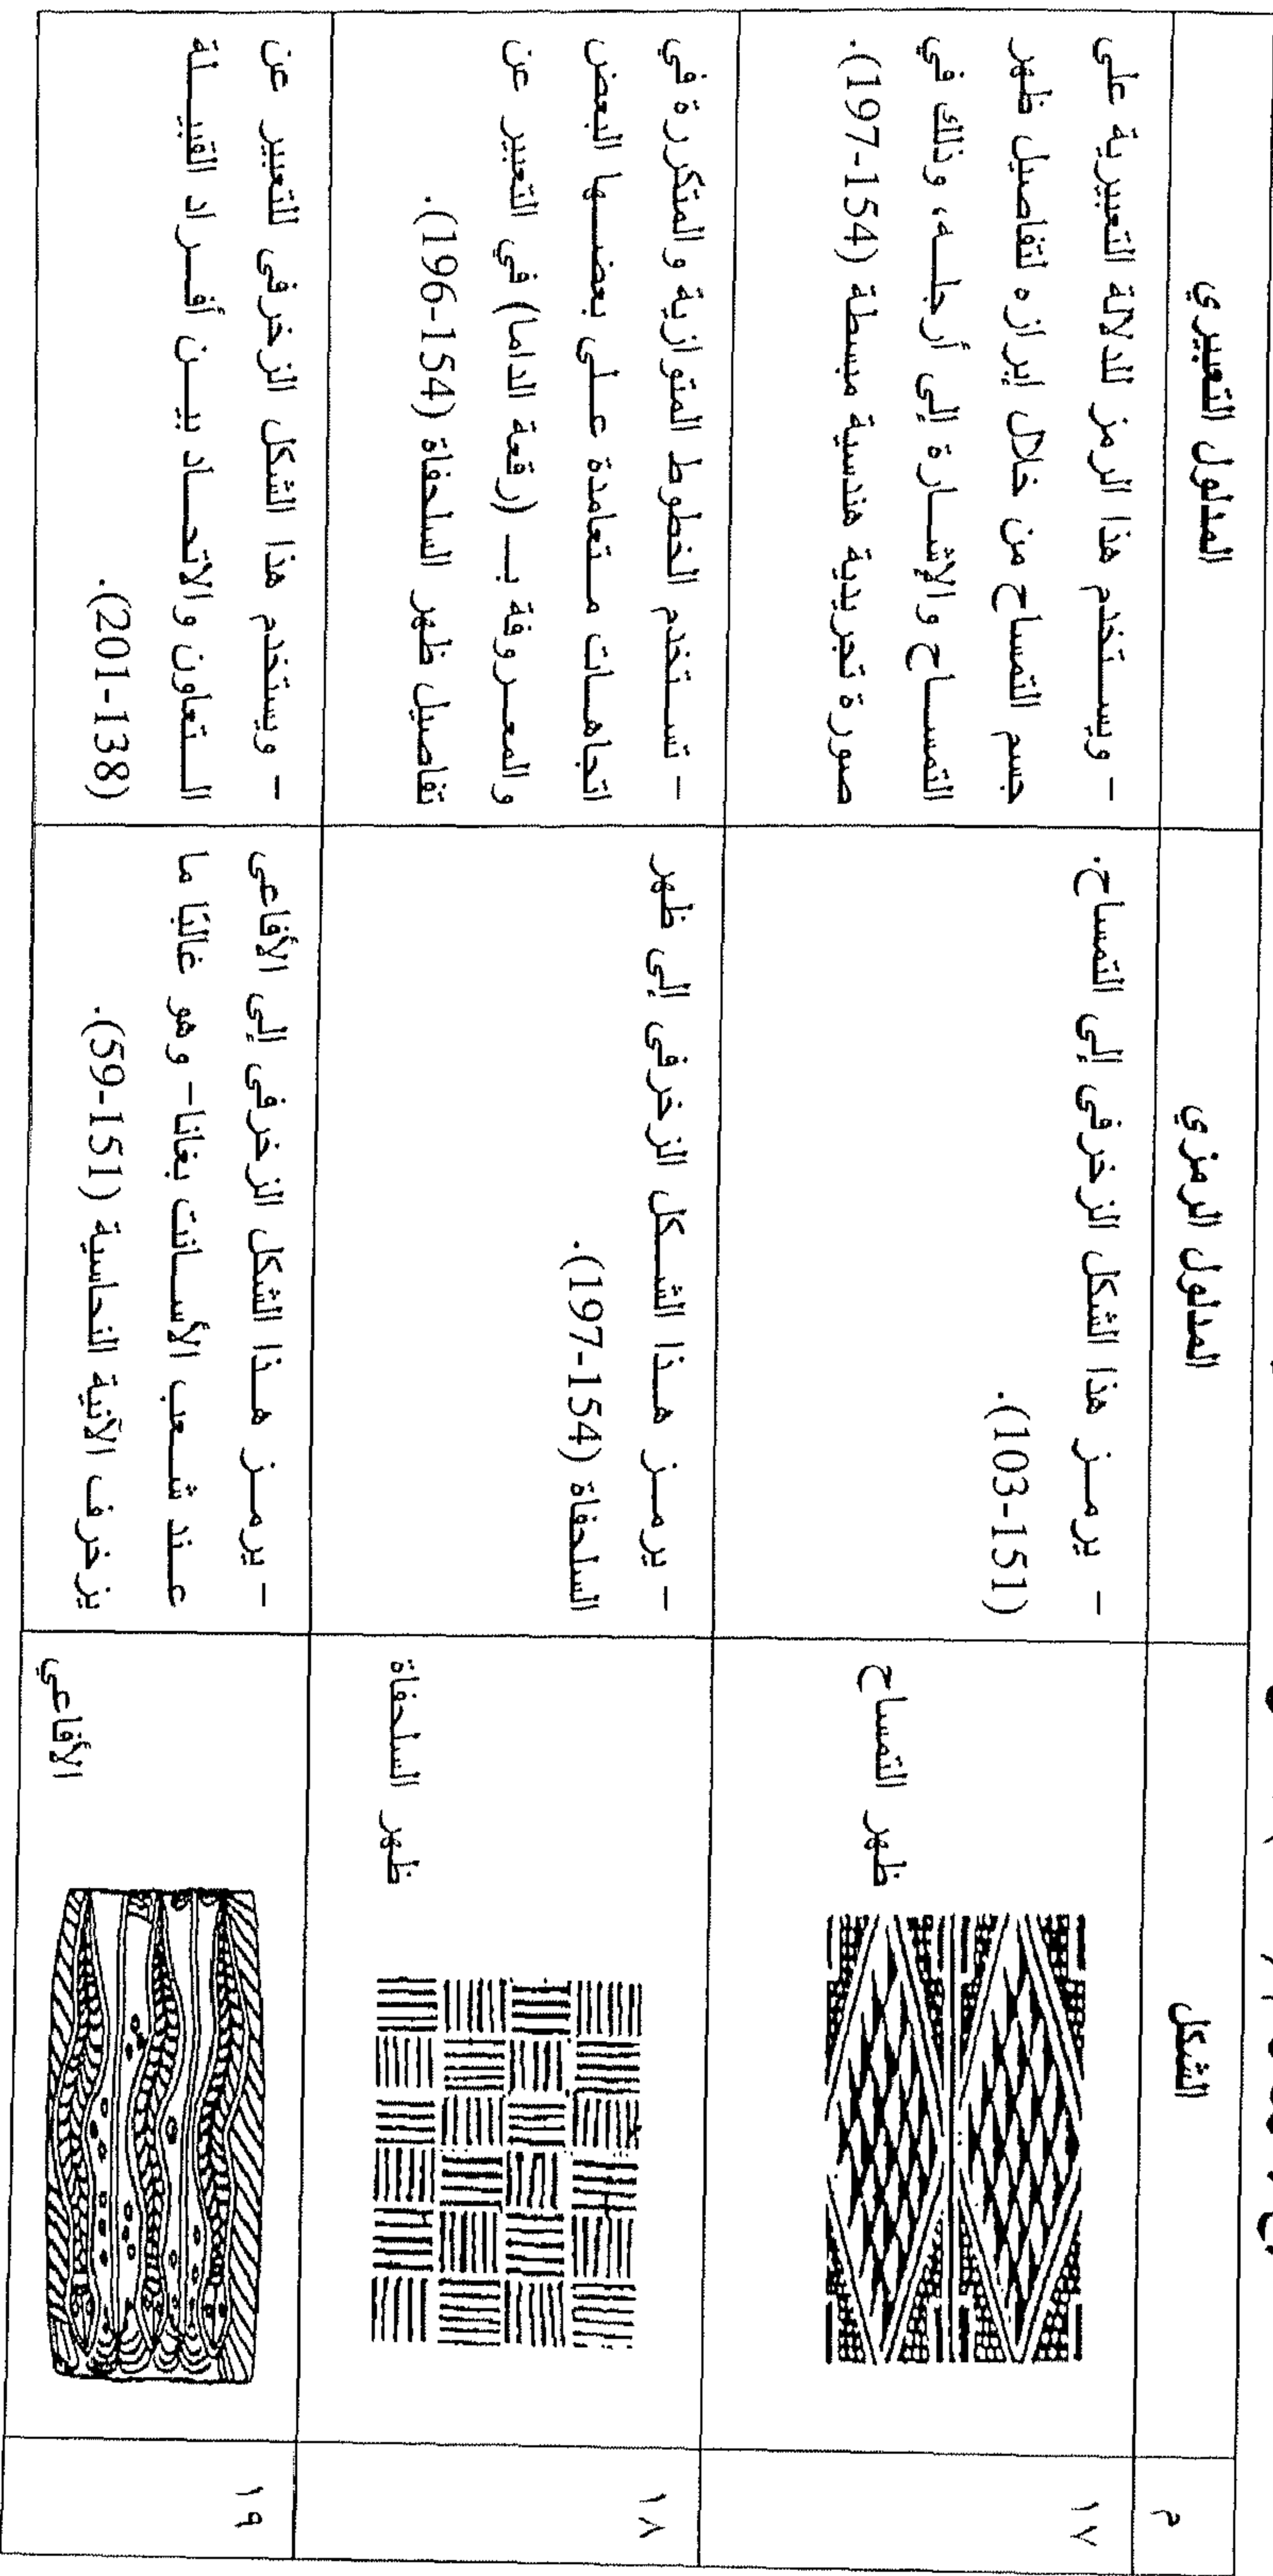 م
الشكل
المدلول الرمزي
المدلول التعبيري
١٧
ظهر التمساح
- يرمز هذا الشكل الزخرفى إلى التمساح.
(103-151).
- ويستخدم هذا الرمز للدلالة التعبيرية على
جسم التمساح من خلال إبرازه لتفاصيل ظهر
التمساح والإشارة إلى أرجله، وذلك في
صورة تجريدية هندسية مبسطة (154-197).
١٨
ظهر السلحفاة
- يرمز هذا الشكل الزخرفى إلى ظهر
السلحفاة (154-197).
- تستخدم الخطوط المتوازية والمتكررة في
اتجاهات متعامدة على بعضها البعض
والمعروفة بـ (رقعة الداما) في التعبير عن
تفاصيل ظهر السلحفاة (154-196).
١٩
الأفاعي
- يرمز هذا الشكل الزخرفى إلى الأفاعى
عند شعب الأسانت بغانا- وهو غالبًا ما
يزخرف الآنية النحاسية (151-59).
- ويستخدم هذا الشكل الزخرفى للتعبير عن
التعاون والاتحاد بين أفراد القبيلة
(138-201).